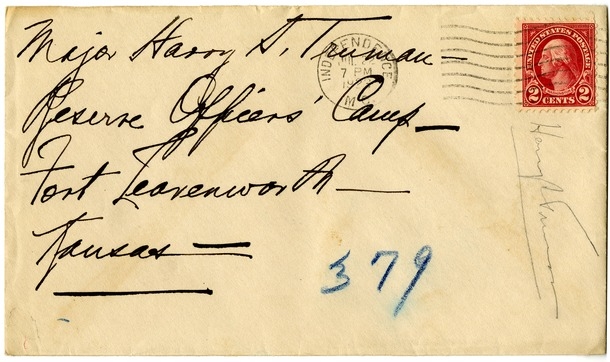 Major Harry S. Truman—
Reserve Officers' Camp—
Fort Leavenworth—
Kansas—
INDEPENDENCE
JUL
7 PM
19
M
UNITED STATES POSTAGE
2 CENTS 2
379
Harry